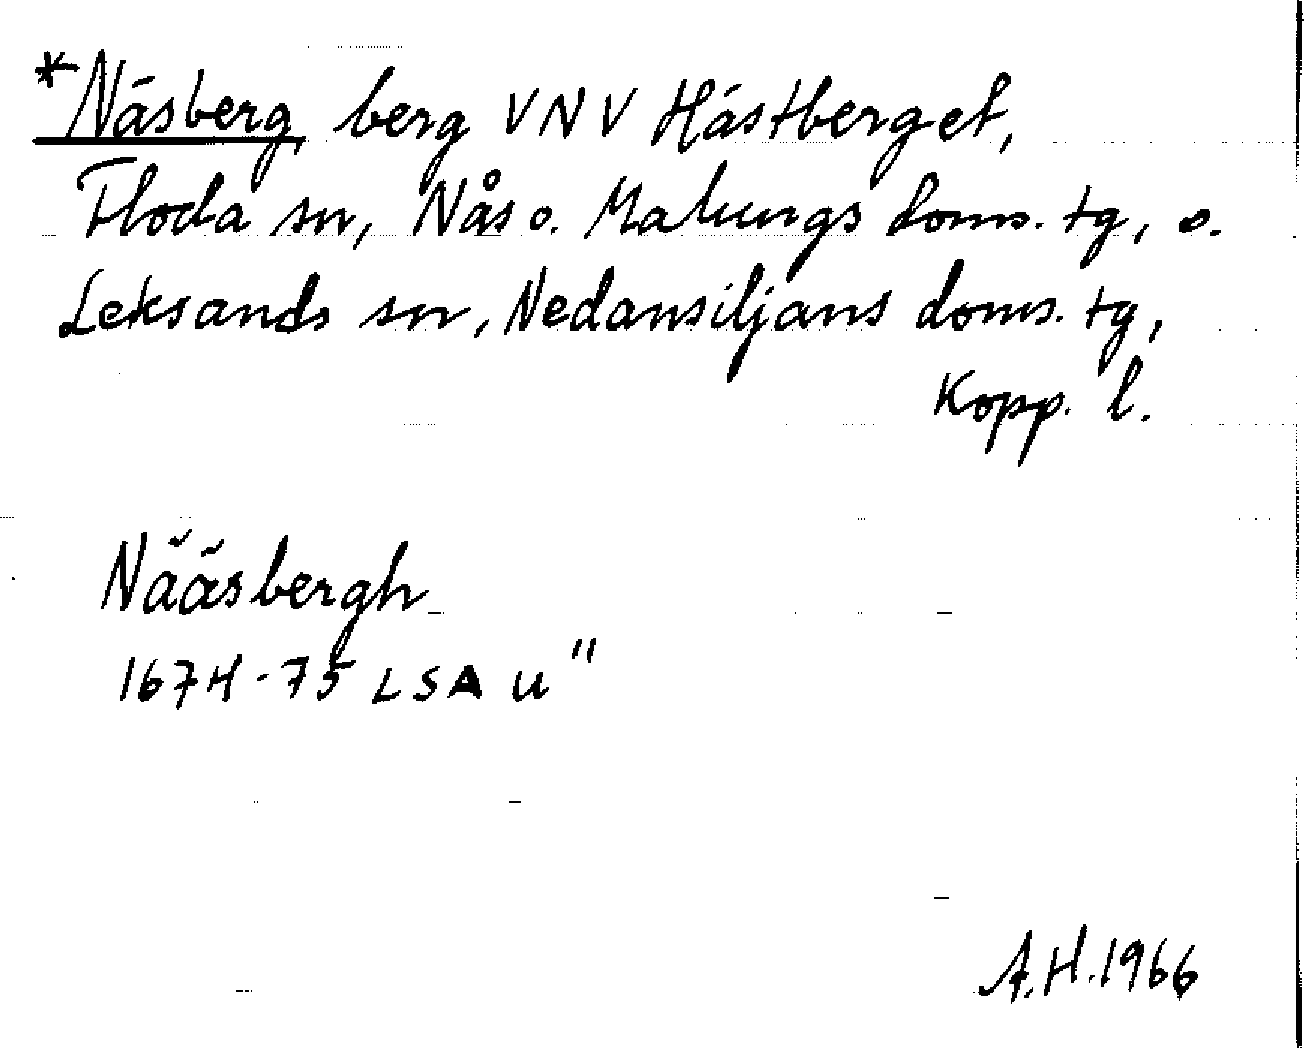 *Näsberg, berg VNV Hästberget,
Floda sn, Nås o. Malungs doms. tg, o.
Leksands sn, Nedansiljans doms. tg,
Kopp. l.
Nääsbergh
1674-75 LSA u"
A.H. 1966